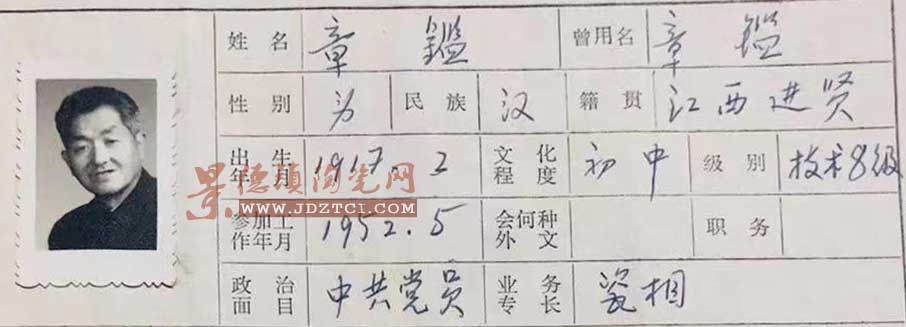 姓名 章鑑 曾用名 章鑑
性别 男 民族 汉 籍贯 江西进贤
出生年月 1917.2 文化程度 初中 级别 技术8级
景德镇陶瓷网
WWW.JDZTCI.COM
参加工作年月 1952.5 会何种外文 职务
政治面目 中共党员 业务专长 瓷相